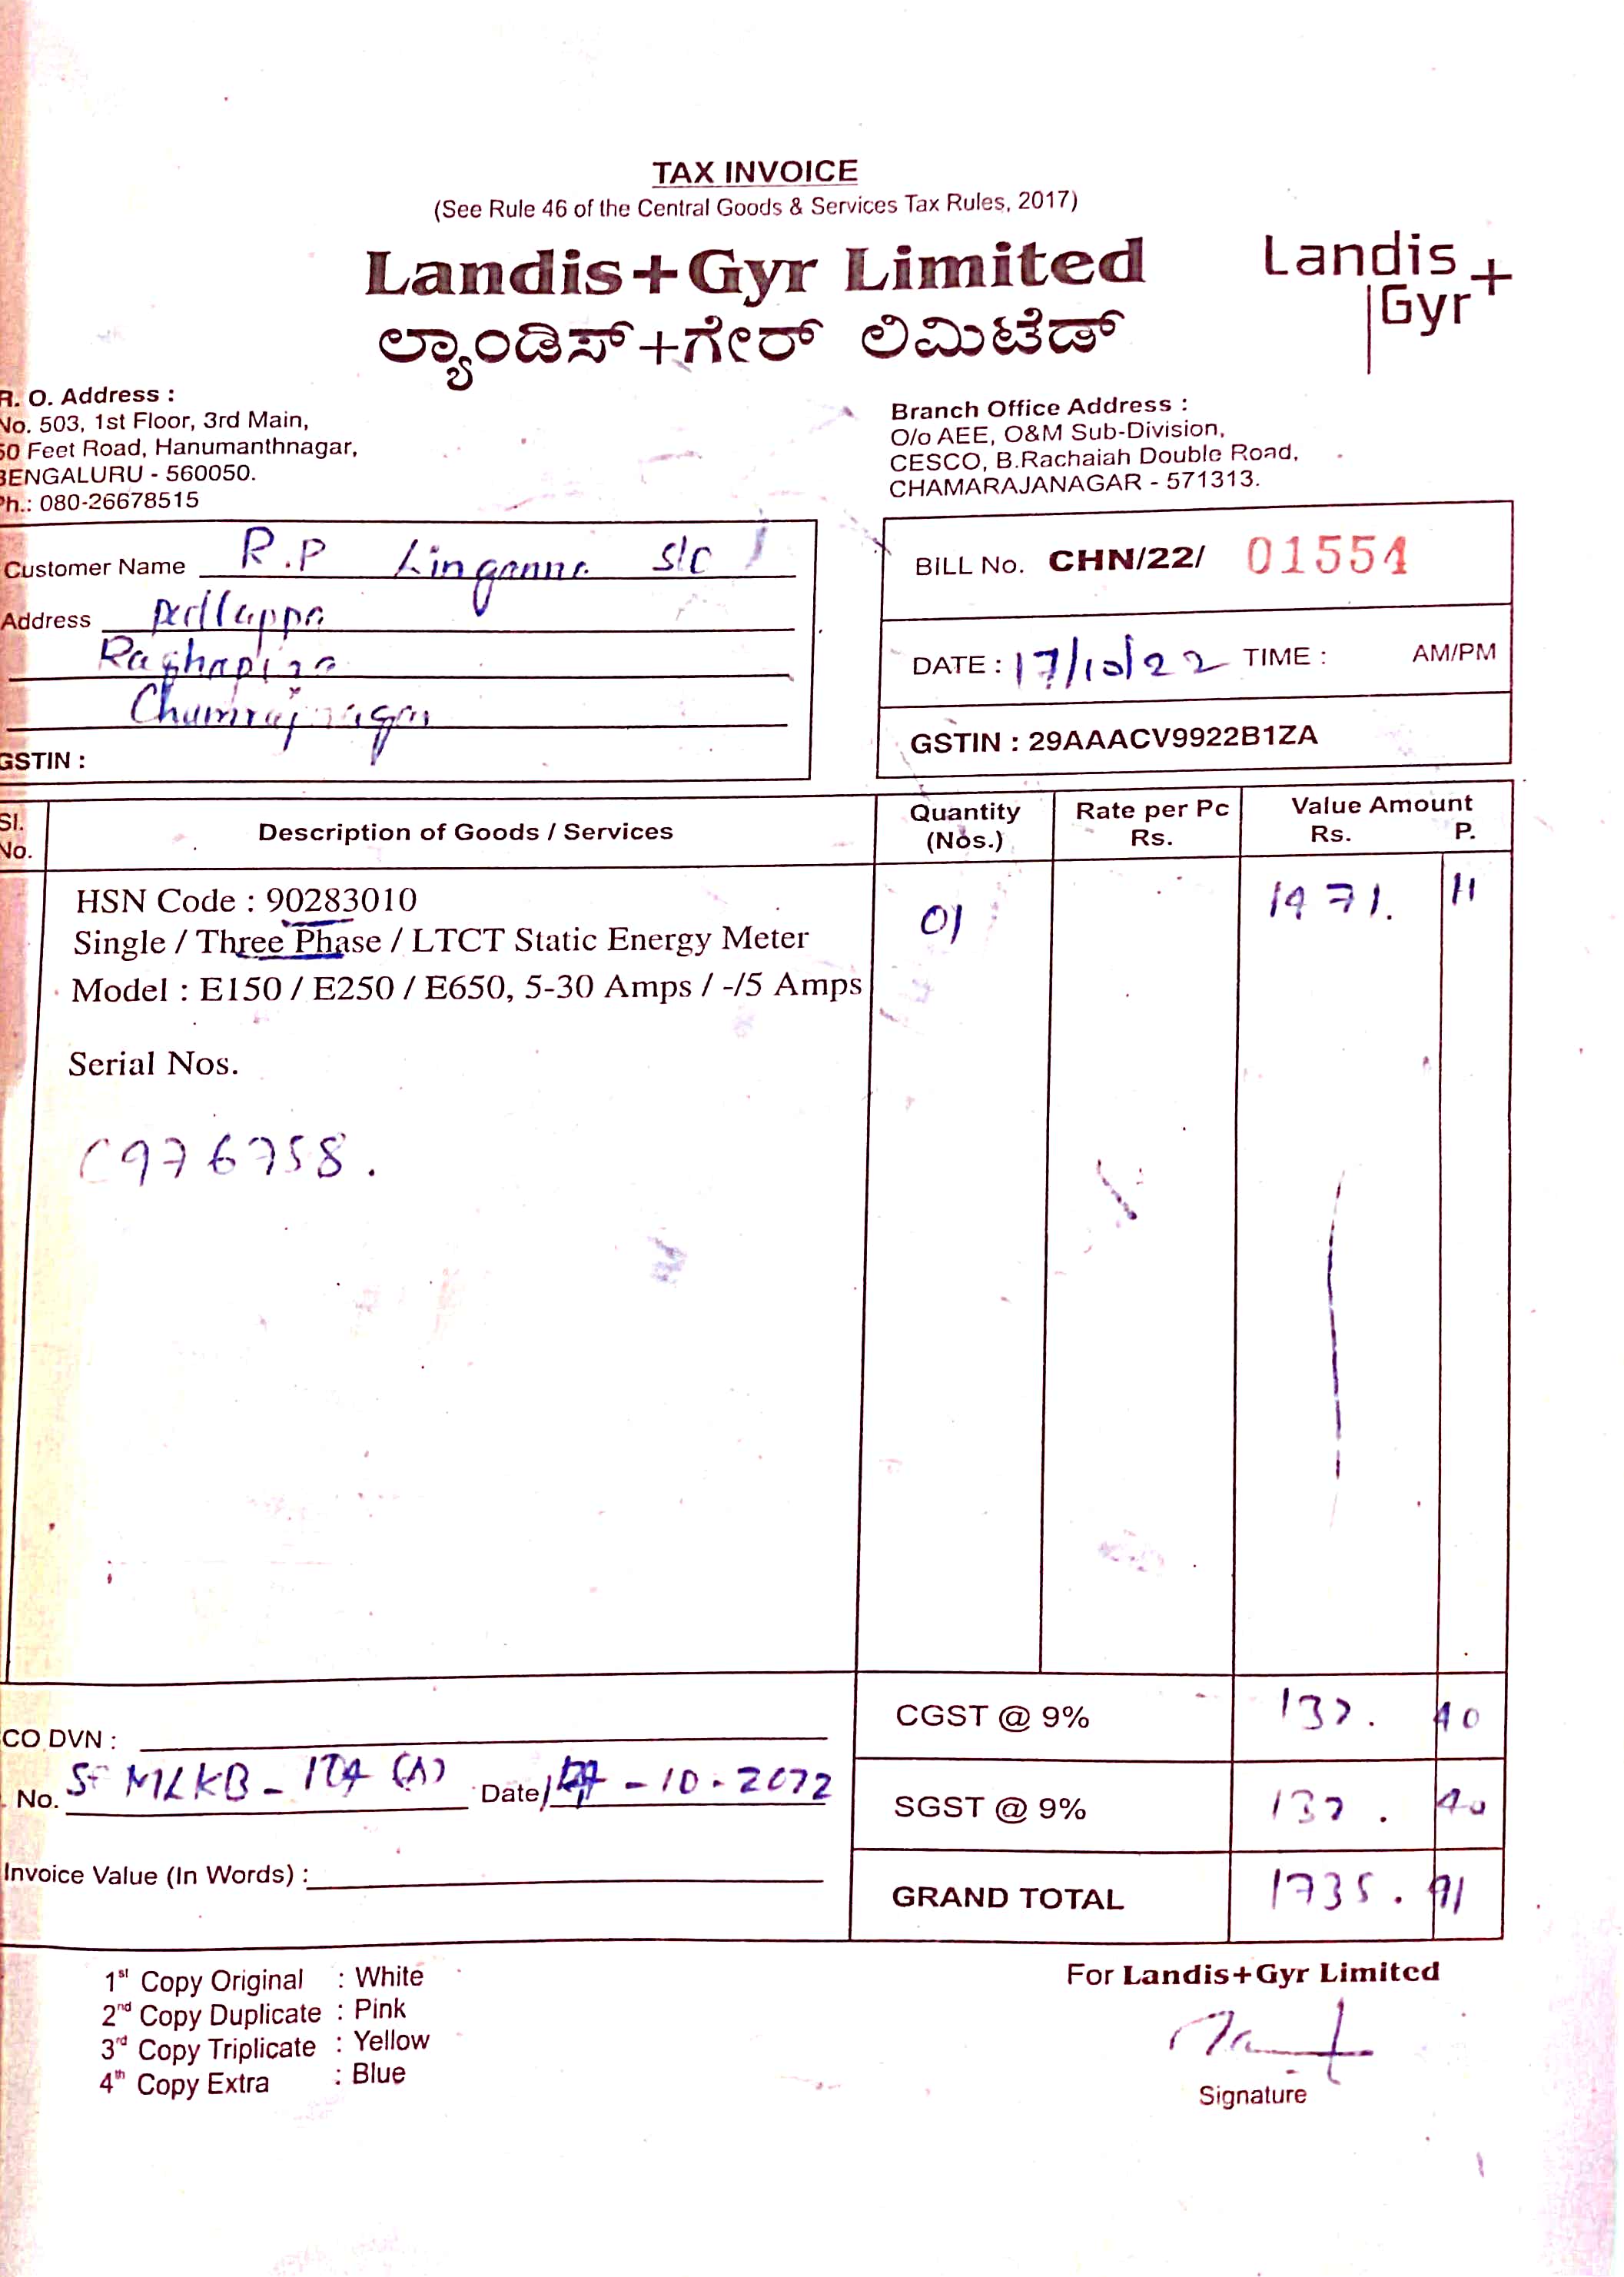 TAX INVOICE
(See Rule 46 of the Central Goods & Services Tax Rules, 2017)
Landis+Gyr Limited
ಲ್ಯಾಂಡಿಸ್+ಗೇರ್ ಲಿಮಿಟೆಡ್
Landis+
Gyr
R. O. Address :
No. 503, 1st Floor, 3rd Main,
50 Feet Road, Hanumanthnagar,
BENGALURU - 560050.
Ph.: 080-26678515
Branch Office Address :
O/o AEE, O&M Sub-Division,
CESCO, B.Rachaiah Double Road,
CHAMARAJANAGAR - 571313.
Customer Name R.P Linganna S/o
Address
GSTIN :
BILL No. CHN/22/ 01554
DATE : 17/10/22 TIME : AM/PM
GSTIN : 29AAACV9922B1ZA
Sl. No. Description of Goods / Services Quantity (Nos.) Rate per Pc Rs. Value Amount Rs. P.
HSN Code : 90283010 01 1471. 11
Single / Three Phase / LTCT Static Energy Meter
Model : E150 / E250 / E650, 5-30 Amps / -/5 Amps
Serial Nos.
C976758.
CGST @ 9% 132. 40
CO DVN :
No. MLKB - Date -10-2022
SGST @ 9% 132. 40
Invoice Value (In Words) :
GRAND TOTAL 1735. 91
1st Copy Original : White
2nd Copy Duplicate : Pink
3rd Copy Triplicate : Yellow
4th Copy Extra : Blue
For Landis+Gyr Limited
Signature